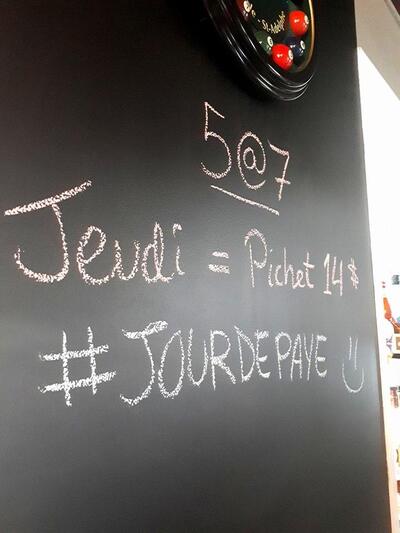 5@7
Jeudi = Pichet 14$
#JOURDEPAYE :)